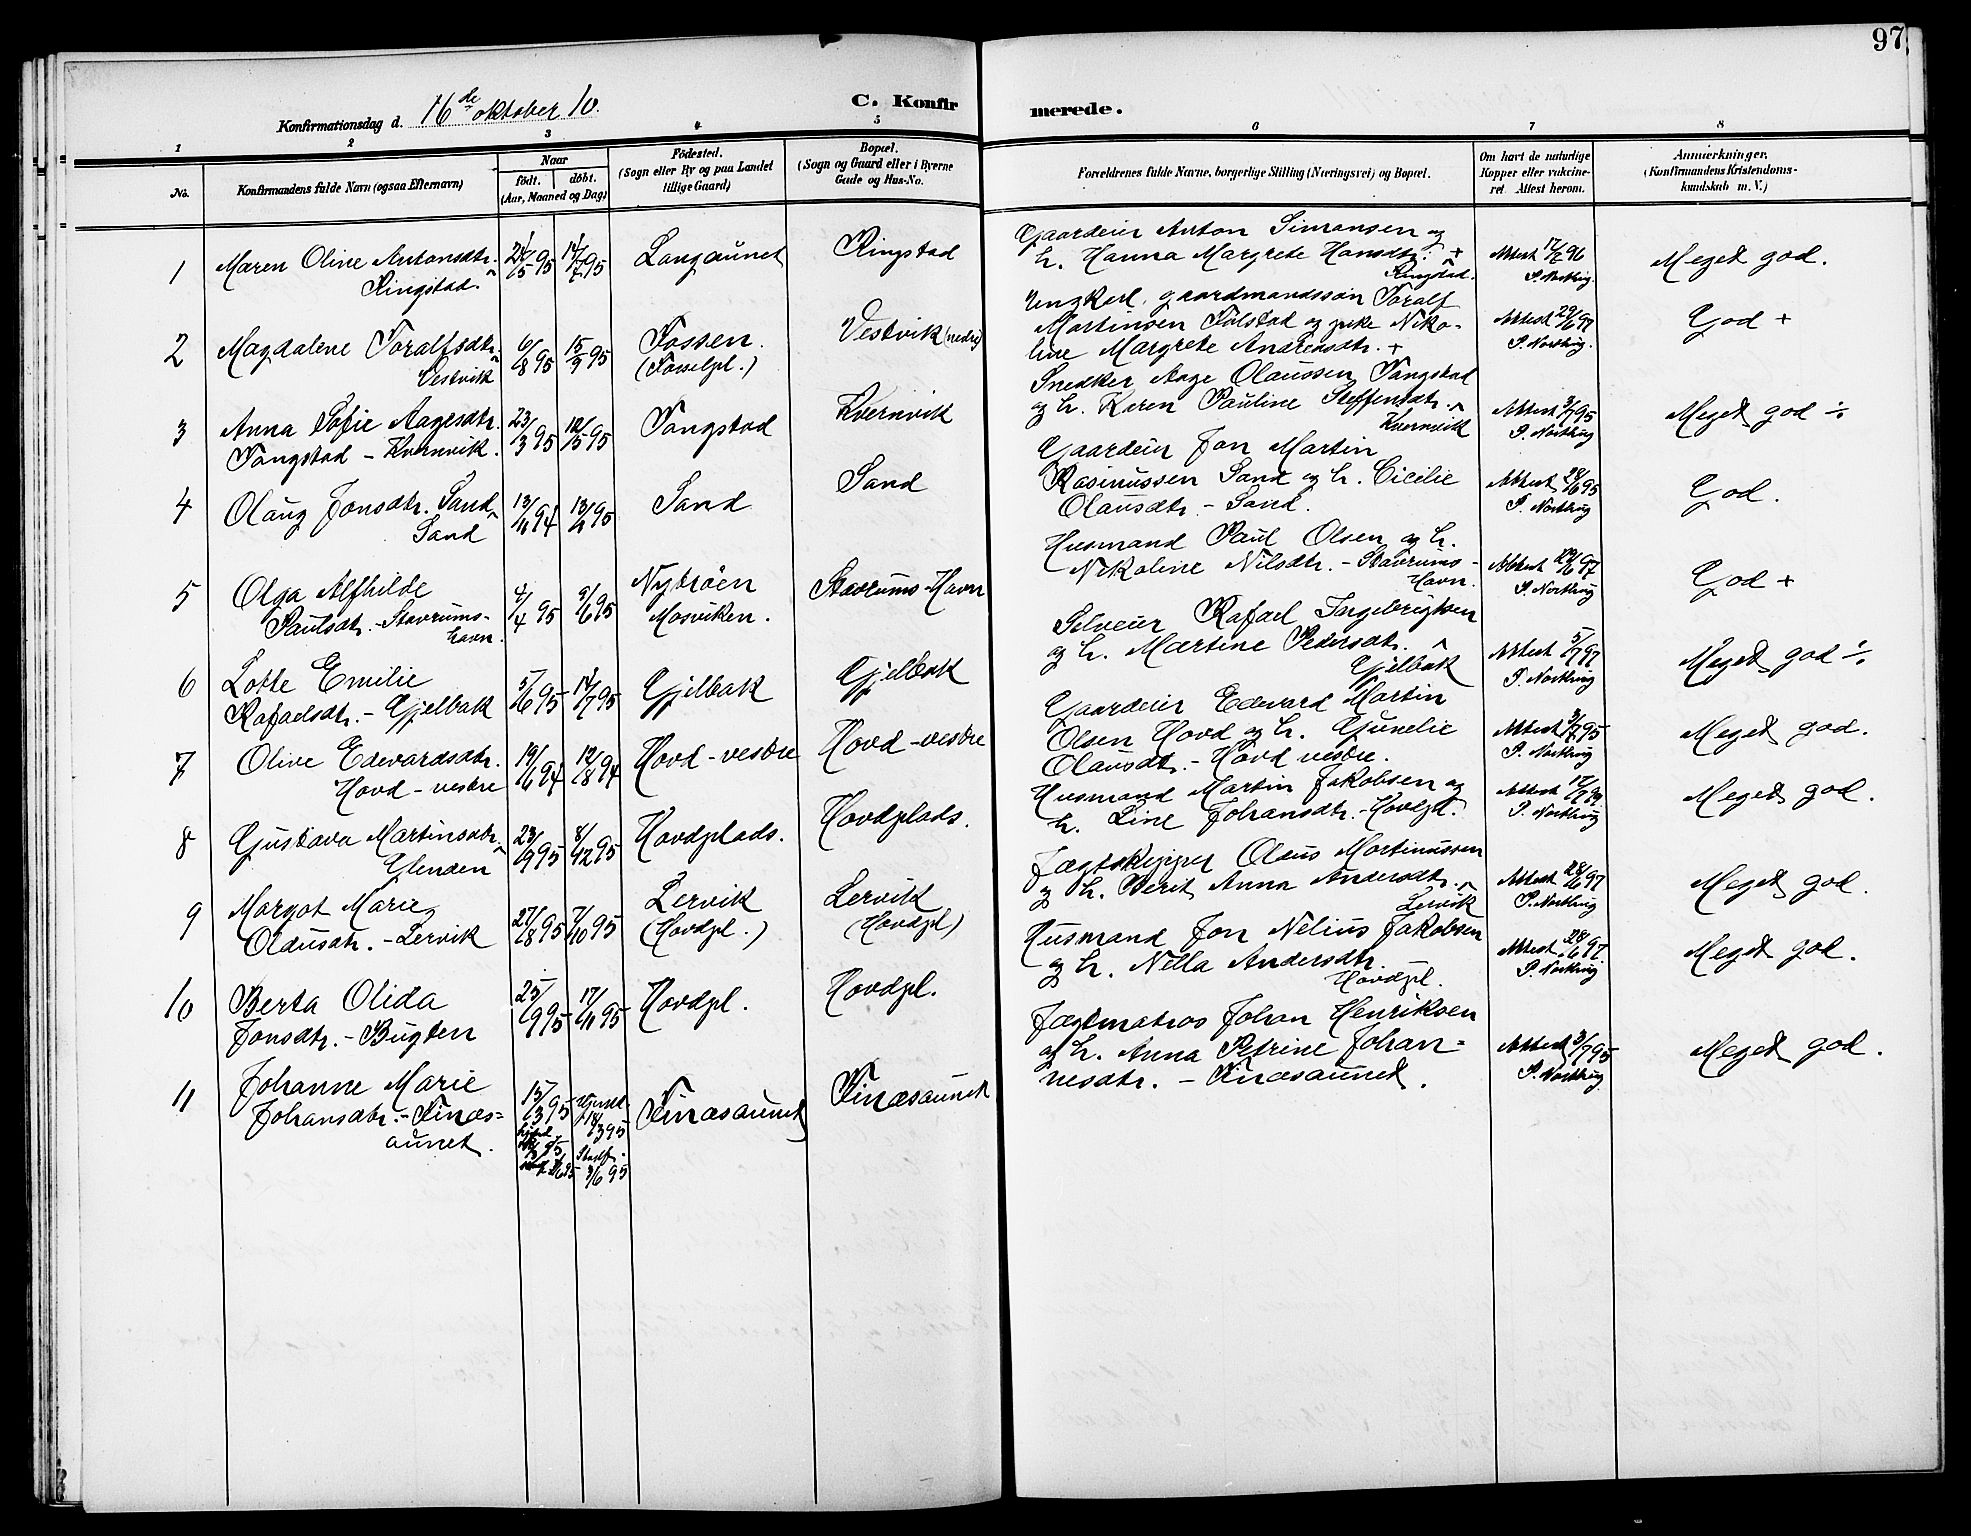 97
Konfirmationsdag d. 16de oktober 10.
C. Konfirmerede.
1 2 3 4 5 6 7 8
No.
Konfirmandens fulde Navn (ogsaa Efternavn)
Naar
født. døbt.
(Aar, Maaned og Dag)
Födested.
(Sogn eller By og paa Landet
tillige Gaard)
Bopæl.
(Sogn og Gaard eller i Byerne
Gade og Hus-No.
Forældrenes fulde Navne, borgerlige Stilling (Næringsvei) og Bopæl.
Om havt de naturlige
Kopper eller vakcine-
ret. Attest herom.
Anmærkninger.
(Konfirmandens Kristendoms-
kundskab m. V.)
1 Maren Oline Antonsdtr.
Ringstad
14/7 95
Langaunet
Ringstad
Gaardeier Anton Simonsen og
h. Hanna Margrete Hansdtr. +
Ringstad.
Attest 17/2 96
P. Northug
Meget god.
2 Magdalene Toralfsdtr.
Vestvik
6/8 95
15/9 95
Fossen.
Vestvik (nedre)
Ungkarl, gaardmandssøn Toralf
Martinsen Følstad og pike Niko-
line Margrete Andreasdtr. +
Attest 29/6 97
P. Northug.
God +
3 Anna Sofie Aagesdtr.
Tangstad - Kvernvik.
23/3 95
12/5 95
Tangstad
Kvernvik
Snedker Aage Olaussen Tangstad
og h. Karen Pauline Steffensdtr.
Kvernvik
Attest 3/7 95
P. Northug
Meget god ÷
4 Olaug Jonsdtr. Sand
Sand
13/11 94
Sand
Sand
Gaardeier Jon Martin
Rasmussen Sand og h. Cicilie
Olausdtr. - Sand.
Attest 28/6 95
P. Northug
God.
5 Olga Alfhilde
Paulsdtr. - Stavrums-
havn.
4/4 95
5/6 95
Nytrøen
Mosviken.
Stavrums-Havn
Husmand Paul Olsen og h.
Nikoline Nilsdtr. - Stavrums-
Havn.
P. Northug
God +
6 Lotte Emilie
Rafaelsdtr. - Gjelbak
5/6 95
14/7 95
Gjelbak
Gjelbak
Selveier Rafael Ingebrigtsen
og h. Martine Pedersdtr.
Gjelbak
Attest 5/7 97
P. Northug
Meget god ÷
7 Oline Edvardsdtr.
Hovd - vestre
19/6 94
12/8 94
Hovd - vestre
Hovd - vestre
Gaardeier Edvard Martin
Olsen Hovd og h. Gunelie
Olausdtr. - Hovd vestre.
Attest 3/7 95
P. Northug
Meget god.
8 Gustava Martinsdtr.
Glenden
23/9 95
8/12 95
Hovdplads.
Hovdplads.
Husmand Martin Jakobsen og
h. Line Johansdtr. - Hovdpl.
P. Northug
Meget god.
9 Margot Marie
Olausdtr. - Lervik
27/8 95
7/10 95
Lervik
(Hovdpl.)
Lervik
(Hovdpl)
Jægtskipper Olaus Martinussen
og h. Berit Anna Andersdtr.
Lervik
Attest 28/6 97
P. Northug
Meget god.
10 Berta Olida
Jonsdtr. - Bugten
25/9 95
17/11 95
Hovdpl.
Hovdpl.
Husmand Jon Nelius Jakobsen
og h. Nella Andersdtr.
Hovdpl.
Attest 28/6 97.
P. Northug
Meget god.
11 Johanne Marie
Johansdtr. - Finæs-
aunet.
15/3 95
Stadf.
3/6 95
Finæsaunet
Finæsaunet
Jægtmatros Johan Henriksen
og h. Anna Petrine Johan-
nesdtr. - Finæsaunet.
Attest 3/7 95
P. Northug
Meget god.